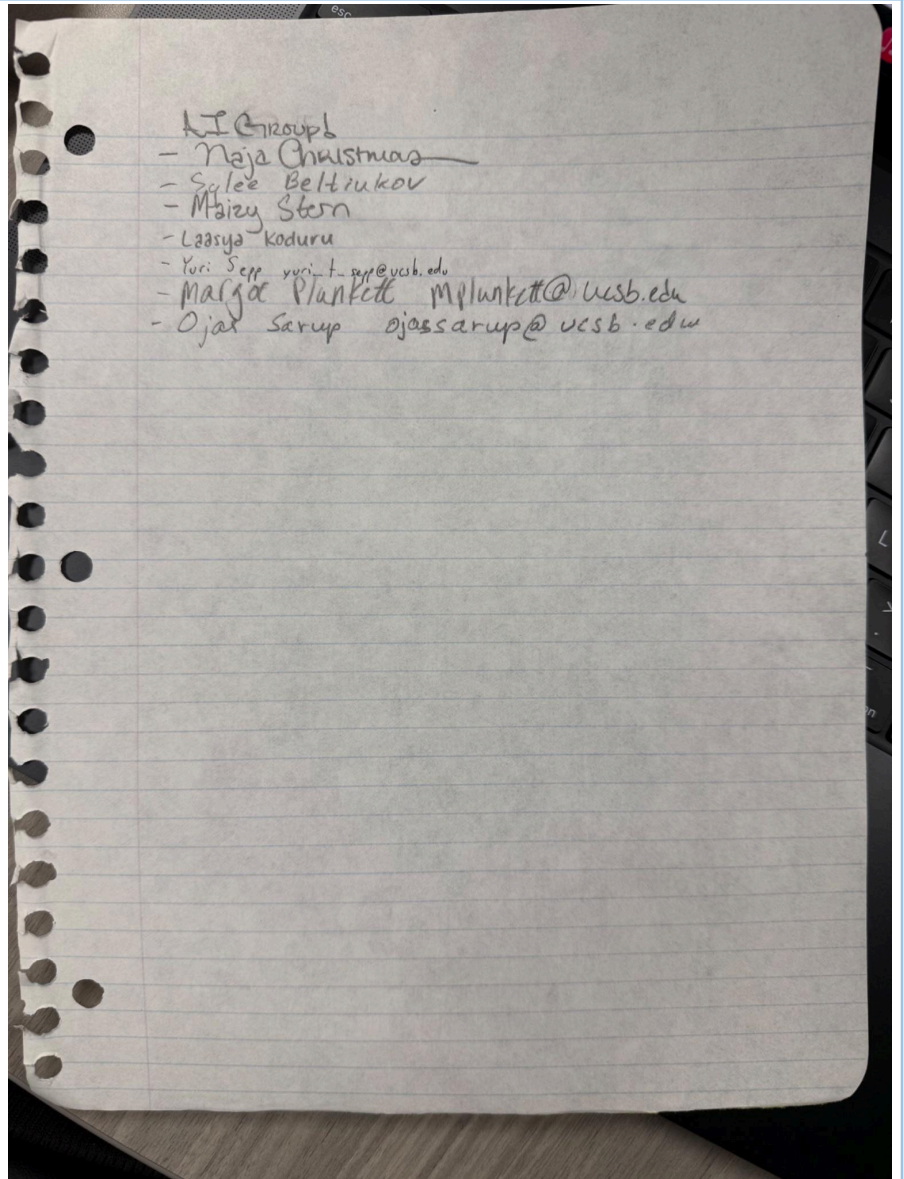 esc
AI Group!
- Naja Christmas
- Sylee Beltiukov
- Maizy Stern
- Laasya Koduru
- Yuri Sepp yuri_t_sepp@ucsb.edu
- Margot Plunkett mplunkett@ucsb.edu
- Ojas Sarup ojassarup@ucsb.edu
L